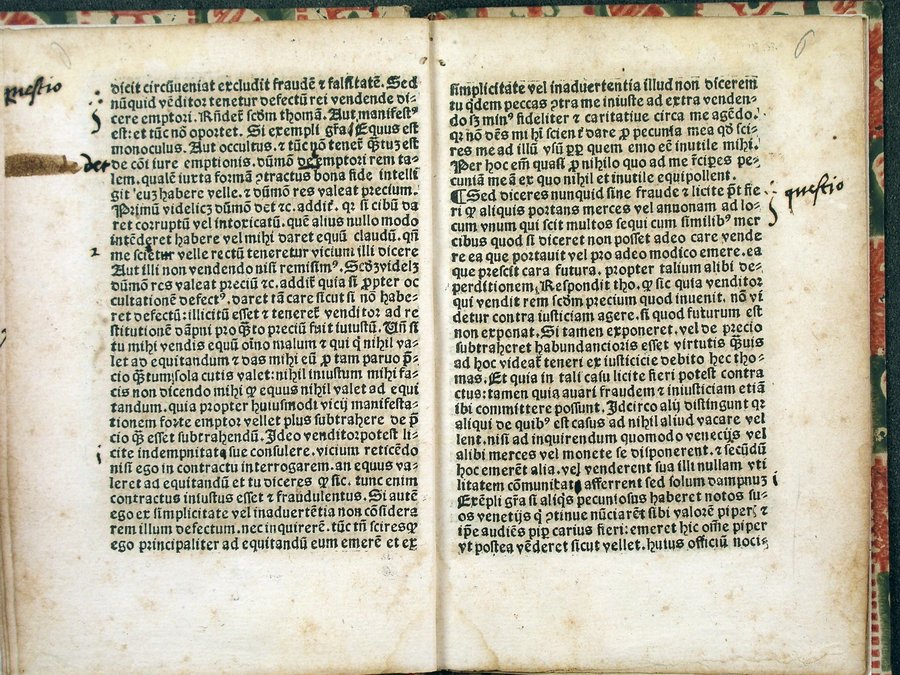 questio
dicit circũueniat excludit fraudẽ ⁊ falſitatẽ. Sed
nũquid vẽditor tenetur defectũ rei vendende di-
cere emptori. Rñdet ſcõm thomã. Aut manifeſtꝰ
eſt: et tũc nõ oportet. Si exempli gr̃a Equus eſt
monoculus. Aut occultus. ⁊ tũc nõ tenet̃ Q̃tuʒ eſt
de cõi iure emptionis. dũmõ det emptori rem ta-
lem. qualẽ iurta formã ↄtractus bona fide intelli
git euʒ habere velle. ⁊ dũmõ res valeat precium.
Primũ videlicʒ dũmõ det ⁊c. addit̃. qꝛ ſi cibũ da
ret corruptũ vel intoxicatũ. quẽ alius nullo modo
intẽderet habere vel mihi daret equũ claudũ. qñ
2 me ſciret̃ velle rectũ teneretur vicium illi dicere
Aut illi non vendendo niſi remiſimꝰ. Scõʒ videlʒ
dũmõ res valeat preciũ ⁊c. addit̃ quia ſi ꝓpter oc
cultationẽ defectꝰ. daret tã care ſicut ſi nõ habe-
ret defectũ: illicitũ eſſet ⁊ teneret̃ venditor ad re
ſtitutionẽ dãpni pro q̃to preciũ fuit iniuſtũ. Vñ ſi
tu mihi vendis equũ oĩno malum ⁊ qui q̃ nihil va-
let ad equitandum ⁊ das mihi eũ ꝓ tam paruo p̃-
cio q̃tum ſola cutis valet: nihil iniuſtum mihi fa-
cis non dicendo mihi ꝙ equus nihil valet ad equi
tandum. quia propter huiuſmodi vicij manifeſta-
tionem forte emptor vellet plus ſubtrahere de p̃
cio q̃ eſſet ſubtrahendũ. Ideo venditor poteſt li-
cite indemnitati ſue conſulere. vicium reticẽdo
niſi ego in contractu interrogarem. an equus va-
leret ad equitandũ et tu diceres ꝙ ſic. tunc enim
contractus iniuſtus eſſet ⁊ fraudulentus. Si autẽ
ego ex ſimplicitate vel inaduertẽtia non cõſidera
rem illum defectum. nec inquirerẽ. tũc tñ ſciresꝙ
ego principaliter ad equitandũ eum emerẽ et ex
6
ſimplicitate vel inaduertentia illud non dicerem
tu q̃dem peccas ↄtra me iniuſte ad extra venden-
do ſʒ minꝰ fideliter ⁊ caritatiue circa me agẽdo.
Qꝛ nõ dẽs mi hi ſcient̃ dare ꝓ pecunia mea ꝙd ſci-
res me ad illũ vſũ ꝓpꝛ quem emo eẽ inutile mihi.
Per hoc em̃ quaſi ꝓ nihilo quo ad me rẽcipes pe-
cuniã meã ex quo nihil et inutile equipollent.
¶ Sed diceres nunquid ſine fraude ⁊ licite p̃t fie
ri ꝙ aliquis portans merces vel annonam ad lo-
cum vnum qui ſcit multos ſequi cum ſimilibꝰ mer
cibus quod ſi diceret non poſſet adeo care vende
re ea que portauit vel pro adeo modico emere. ea
que preſcit cara futura. propter talium alibi de-
perditionem. Reſpondit tho. ꝙ ſic quia venditor
qui vendit rem ſcõm precium quod inuenit. nõ vi
detur contra iuſticiam agere. ſi quod futurum eſt
non exponat. Si tamen exponeret. vel de precio
ſubtraheret habundancioris eſſet virtutis q̃uis
ad hoc videat̃ teneri ex iuſticicie debito hec tho-
mas. Et quia in tali caſu licite fieri poteſt contra
ctus: tamen quia auari fraudem ⁊ iniuſticiam etiã
ibi committere poſſunt. Idcirco alij diſtingunt qꝛ
aliqui de quibꝰ eſt caſus ad nihil aliud vacare vel
lent. niſi ad inquirendum quomodo venecijs vel
alibi merces vel monete ſe diſponerent. ⁊ ſecũdũ
hoc emerẽt alia. vel venderent ſua illi nullam vti
litatem cõmunitati afferrent ſed ſolum dampnuʒ
Exẽpli gr̃a ſi aliq̃s pecunioſus haberet notos ſu-
os venetijs q̃ ↄtinue nũciarẽt ſibi valorẽ piper̃ ⁊
ip̃e audiẽs pip̃ carius fieri: emeret hic om̃e piper
vt poſtea vẽderet ſicut vellet. huius officiũ nociꝫ
questio